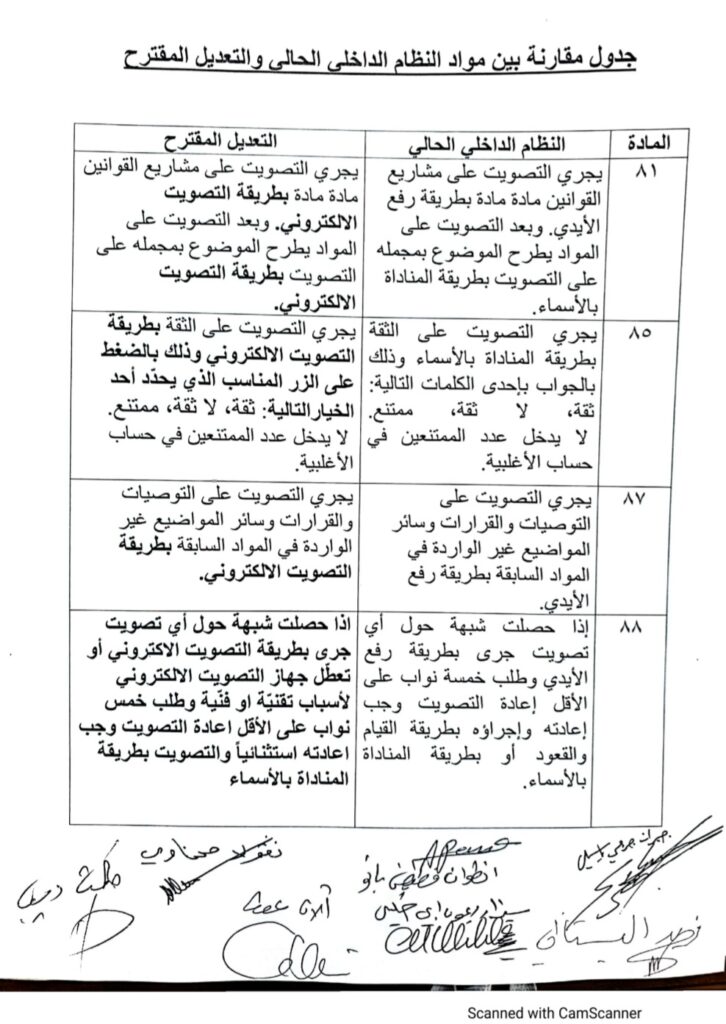 جدول مقارنة بين مواد النظام الداخلي الحالي والتعديل المقترح
المادة
النظام الداخلي الحالي
التعديل المقترح
٨١
يجري التصويت على مشاريع
القوانين مادة مادة بطريقة رفع
الأيدي. وبعد التصويت على
المواد يطرح الموضوع بمجمله
على التصويت بطريقة المناداة
بالأسماء.
يجري التصويت على مشاريع القوانين
مادة مادة بطريقة التصويت
الالكتروني. وبعد التصويت على
المواد يطرح الموضوع بمجمله على
التصويت بطريقة التصويت
الالكتروني.
٨٥
يجري التصويت على الثقة
بطريقة المناداة بالأسماء وذلك
بالجواب بإحدى الكلمات التالية:
ثقة، لا ثقة، ممتنع.
لا يدخل عدد الممتنعين في
حساب الأغلبية.
يجري التصويت على الثقة بطريقة
التصويت الالكتروني وذلك بالضغط
على الزر المناسب الذي يحدّد أحد
الخيارالتالية: ثقة، لا ثقة، ممتنع.
لا يدخل عدد الممتنعين في حساب
الأغلبية.
٨٧
يجري التصويت على
التوصيات والقرارات وسائر
المواضيع غير الواردة في
المواد السابقة بطريقة رفع
الأيدي.
يجري التصويت على التوصيات
والقرارات وسائر المواضيع غير
الواردة في المواد السابقة بطريقة
التصويت الالكتروني.
٨٨
إذا حصلت شبهة حول أي
تصويت جرى بطريقة رفع
الأيدي وطلب خمسة نواب على
الأقل إعادة التصويت وجب
إعادته وإجراؤه بطريقة القيام
والقعود أو بطريقة المناداة
بالأسماء.
اذا حصلت شبهة حول أي تصويت
جرى بطريقة التصويت الاكتروني أو
تعطّل جهاز التصويت الالكتروني
لأسباب تقنيّة او فنّية وطلب خمس
نواب على الأقل اعادة التصويت وجب
اعادته استثنائياً والتصويت بطريقة
المناداة بالأسماء
نقولا صحناوي
آلان عون
Scanned with CamScanner